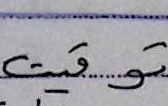 توقيت